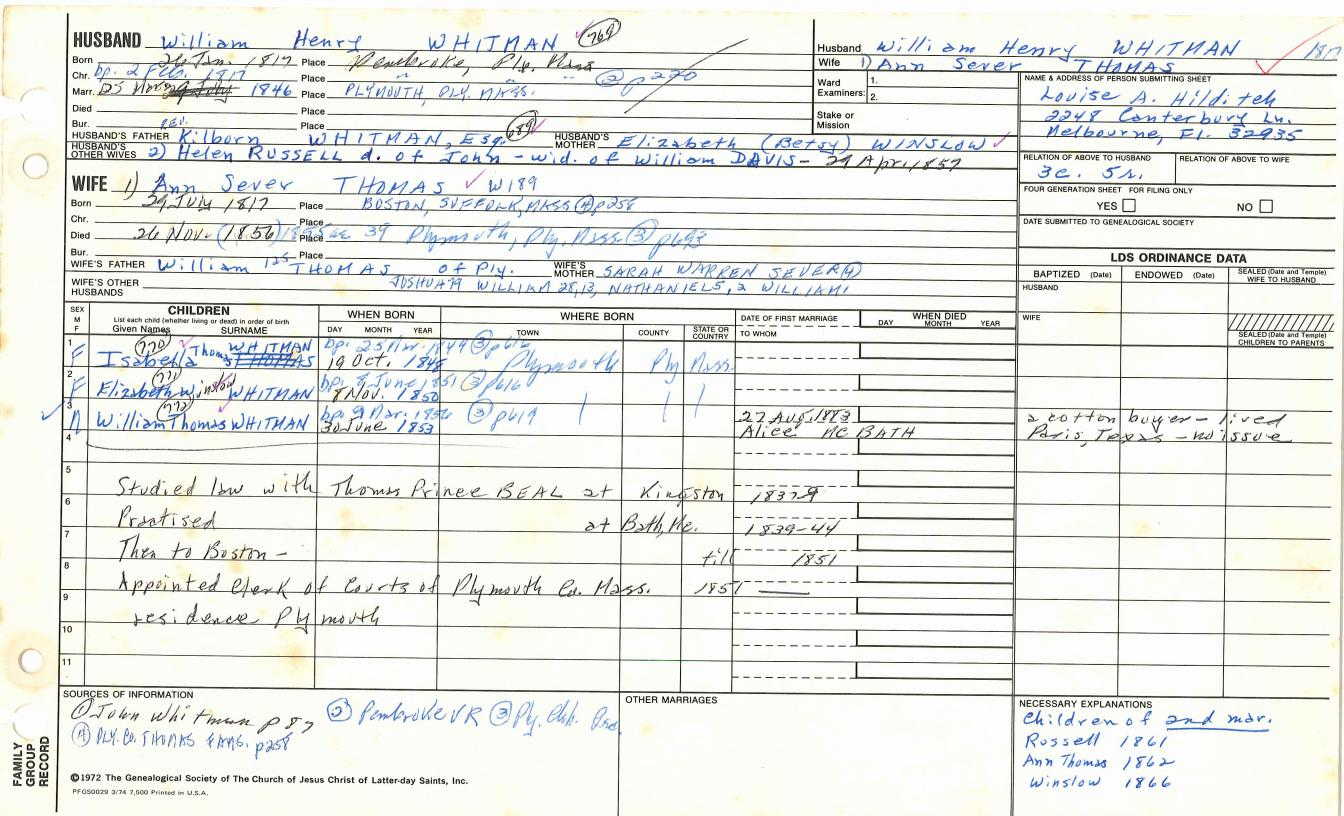 HUSBAND William Henry WHITMAN 769
Born 26 Jan. 1817 Place Pembroke, Ply. Mass
Chr. bp. 2 Feb. 1817 Place " " " ② p 270
Marr. 1846 Place PLYMOUTH, PLY. MASS.
Died Place
Bur. Place
REV.
HUSBAND'S FATHER Kilborn WHITMAN, Esq. 689 HUSBAND'S MOTHER Elizabeth (Betsy) WINSLOW
HUSBAND'S OTHER WIVES 2) Helen RUSSELL d. of John - wid. of William DAVIS - 29 Apr, 1857
Husband William Henry WHITMAN
Wife 1) Ann Sever THOMAS
Ward Examiners: 1.
2.
Stake or Mission
NAME & ADDRESS OF PERSON SUBMITTING SHEET
Louise A. Hilditch
2248 Canterbury Ln.
Melbourne, Fl. 32935
RELATION OF ABOVE TO HUSBAND RELATION OF ABOVE TO WIFE
3c. 5r.
FOUR GENERATION SHEET FOR FILING ONLY
YES NO
DATE SUBMITTED TO GENEALOGICAL SOCIETY
WIFE 1) Ann Sever THOMAS W189
Born 29 July 1817 Place BOSTON, SUFFOLK, MASS ④ p258
Chr. Place
Died 26 Nov. (1856) 39 Place Plymouth, Ply. Mass. ③
Bur. Place
WIFE'S FATHER William 125 THOMAS of Ply. WIFE'S MOTHER SARAH WARREN SEVER ④
WIFE'S OTHER HUSBANDS JOSHUA 79 WILLIAM 28, 13, NATHANIEL 5, 2 WILLIAM 1
LDS ORDINANCE DATA
BAPTIZED (Date) ENDOWED (Date) SEALED (Date and Temple) WIFE TO HUSBAND
HUSBAND
WIFE
SEALED (Date and Temple) CHILDREN TO PARENTS
SEX M F
CHILDREN
List each child (whether living or dead) in order of birth
Given Names SURNAME
WHEN BORN
DAY MONTH YEAR
WHERE BORN
TOWN COUNTY STATE OR COUNTRY
DATE OF FIRST MARRIAGE
TO WHOM
WHEN DIED
DAY MONTH YEAR
1 F 770 Isabella Thomas WHITMAN THOMAS bp. 25 1849 ③ p616
19 Oct. 1848 Plymouth Ply Mass.
2 F 771 Elizabeth Winslow WHITMAN bp. 8 June 1851 ③ p616
8 Nov. 1850
3 M 772 William Thomas WHITMAN bp. 9 Mar. 1856 ③ p619
30 June 1853
27 Aug. 1883
Alice MC BATH
a cotton buyer - lived
Paris, Texas - no issue
4
5
Studied law with Thomas Prince BEAL at Kingston 1837-9
6
Practised at Bath, Me. 1839-44
7
Then to Boston - till 1851
8
Appointed Clerk of Courts of Plymouth Co. Mass. 1851
9
residence Plymouth
10
11
SOURCES OF INFORMATION
① John Whitman p 87 ② Pembroke VR ③ Ply. Chh.
④ PLY. CO. THOMAS FAMS. p258
OTHER MARRIAGES
NECESSARY EXPLANATIONS
Children of 2nd mar.
Russell 1861
Ann Thomas 1862
Winslow 1866
©1972 The Genealogical Society of The Church of Jesus Christ of Latter-day Saints, Inc.
PFGS0029 3/74 7,500 Printed in U.S.A.
FAMILY GROUP RECORD